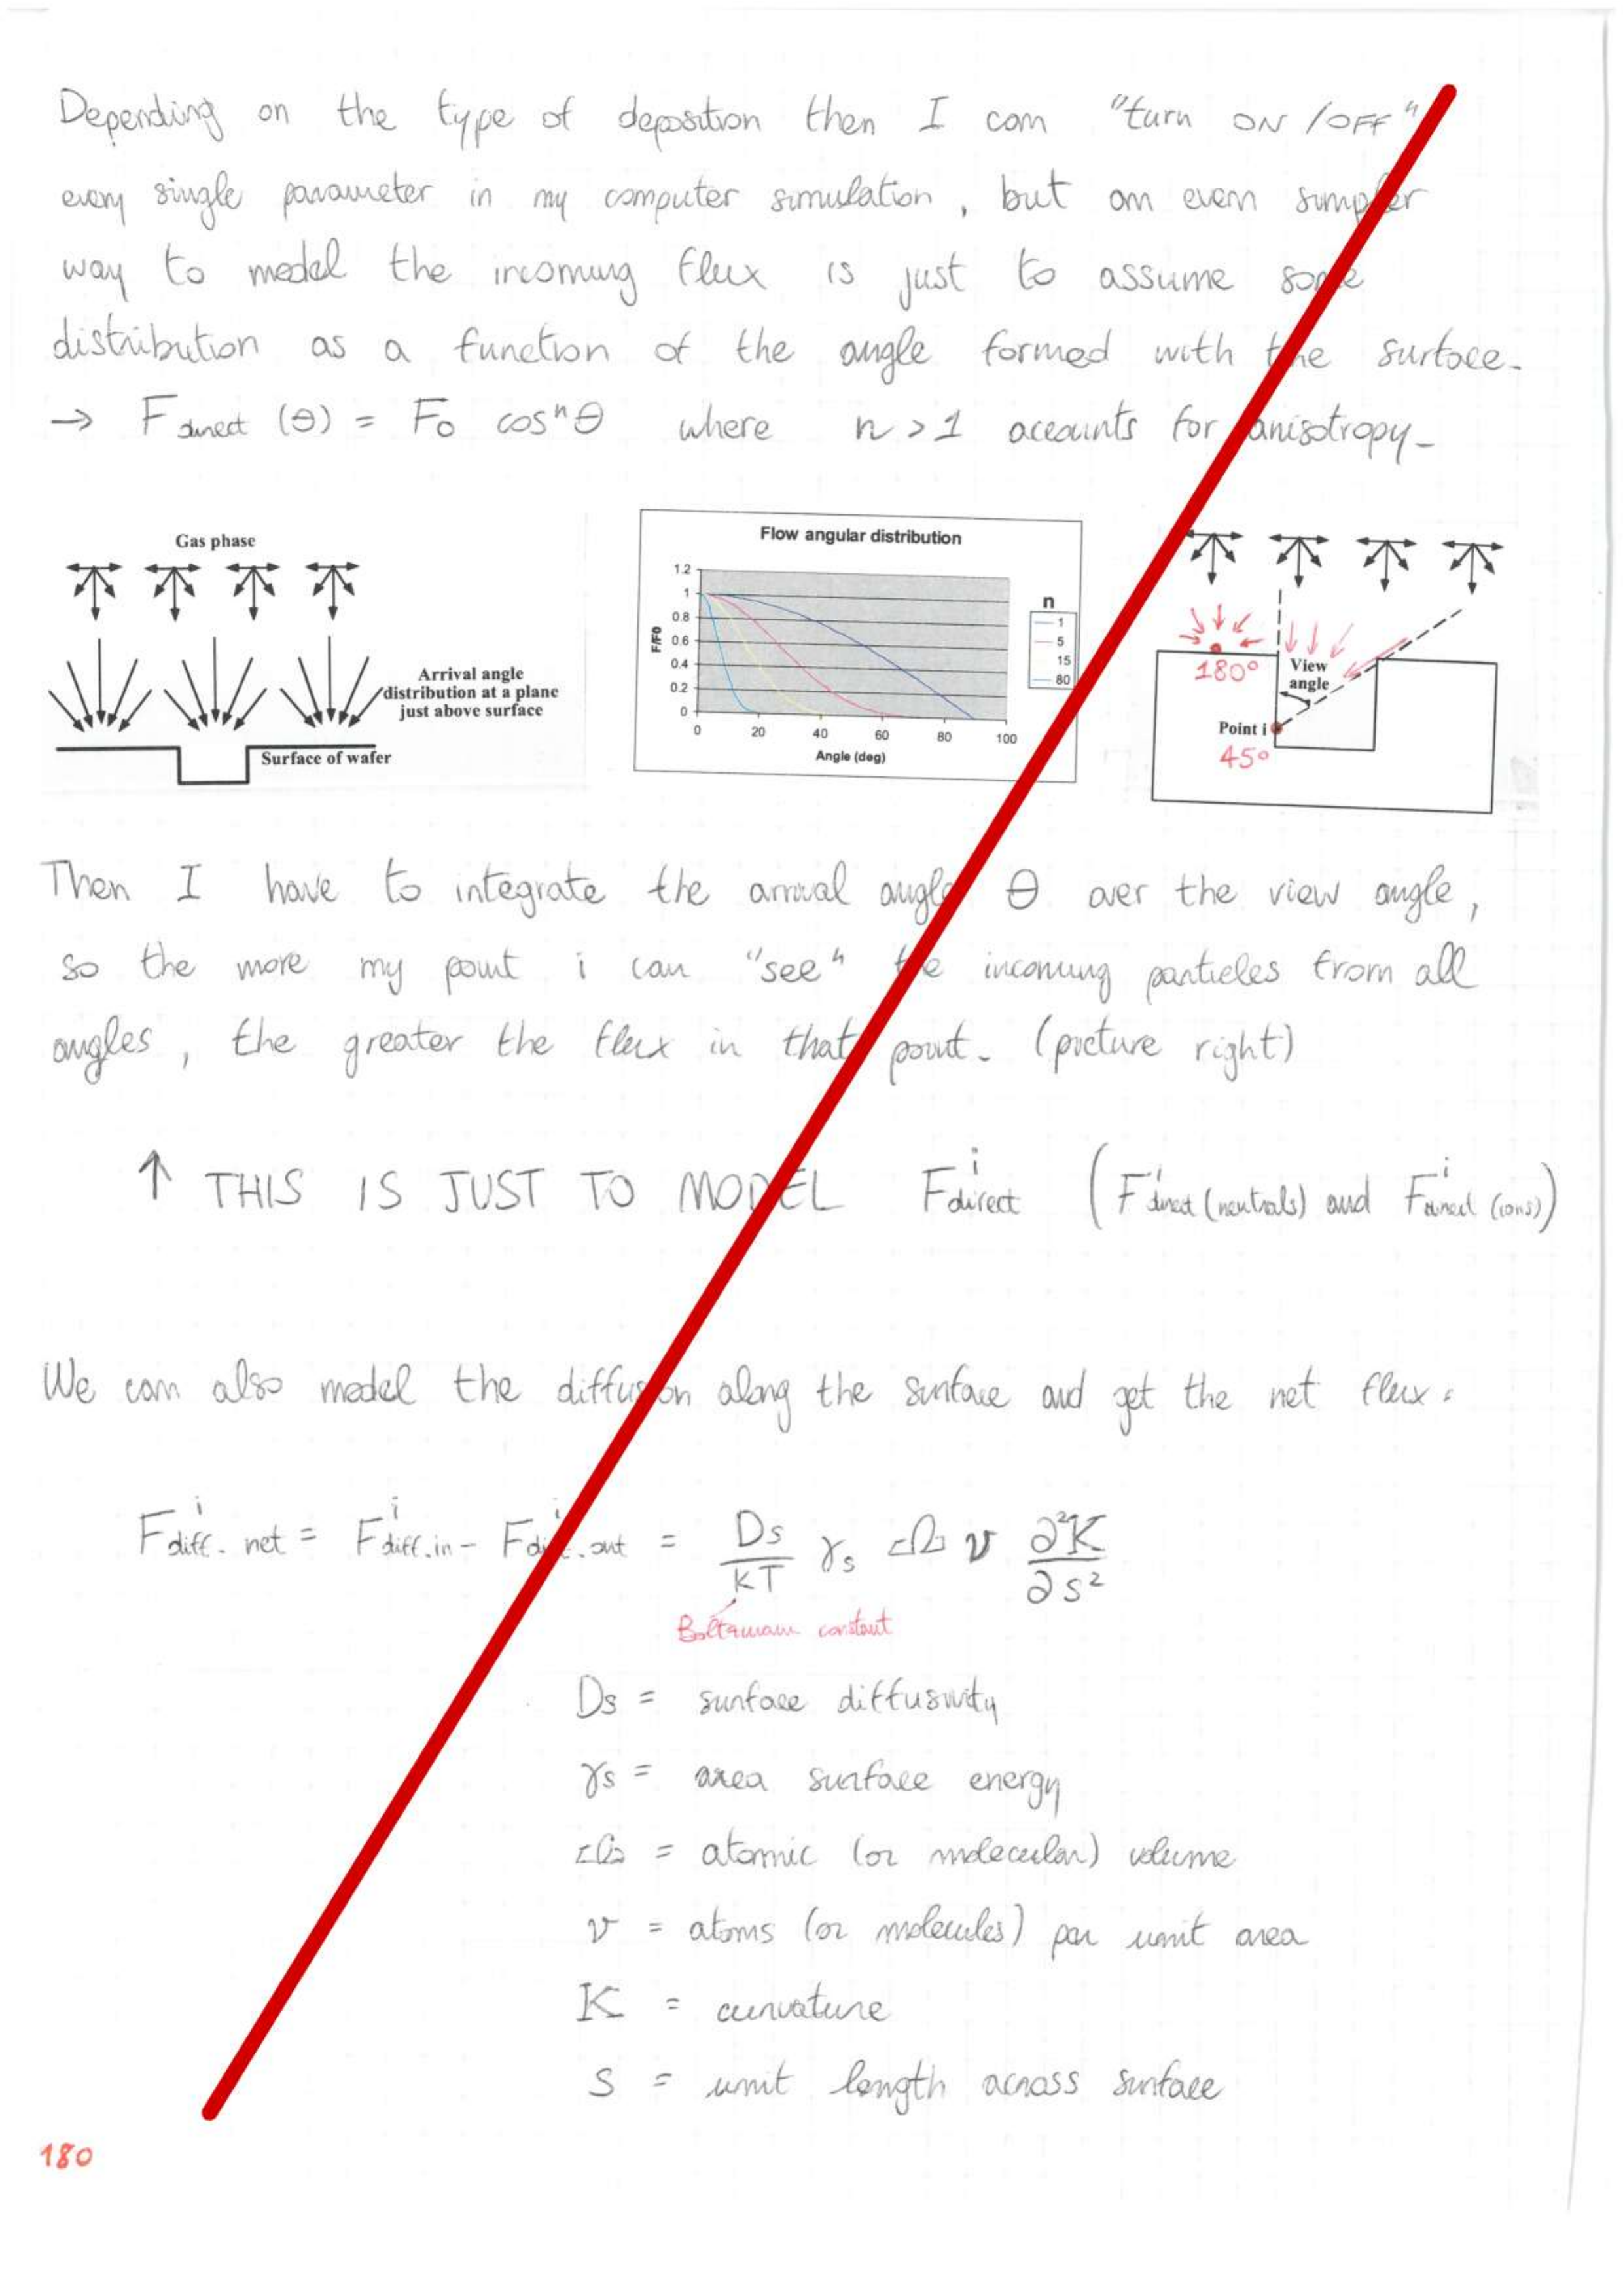 Depending on the type of deposition then I can "turn ON/OFF"
every single parameter in my computer simulation, but an even simpler
way to model the incoming flux is just to assume some
distribution as a function of the angle formed with the surface.
→ F direct (θ) = F₀ cosⁿθ where n > 1 accounts for anisotropy.
Gas phase
Arrival angle
distribution at a plane
just above surface
Surface of wafer
Flow angular distribution
1.2
1
0.8
0.6
0.4
0.2
0
F/F0
0 20 40 60 80 100
Angle (deg)
n
1
5
15
80
180°
View
angle
Point i
45°
Then I have to integrate the arrival angle θ over the view angle,
so the more my point i can "see" the incoming particles from all
angles, the greater the flux in that point. (picture right)
↑ THIS IS JUST TO MODEL Fⁱdirect (Fⁱdirect (neutrals) and Fⁱdirect (ions))
We can also model the diffusion along the surface and get the net flux:
Fⁱdiff. net = Fⁱdiff.in - Fⁱdiff.out = Ds/kT γs Ω ν ∂²K/∂s²
Boltzmann constant
Ds = surface diffusivity
γs = area surface energy
Ω = atomic (or molecular) volume
ν = atoms (or molecules) per unit area
K = curvature
S = unit length across surface
180